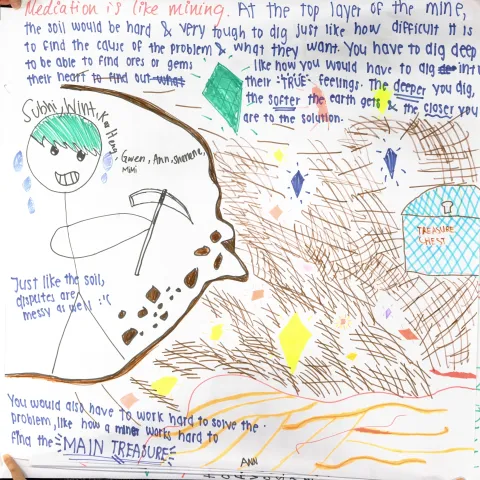 Mediation is like mining. At the top layer of the mine,
the soil would be hard & very tough to dig just like how difficult it is
to find the cause of the problem & what they want. You have to dig deep
to be able to find ores or gems like how you would have to dig into
their heart to find out what their "TRUE" feelings. The deeper you dig,
the softer the earth gets & the closer you
are to the solution.
Subhi, Wint,
Gwen, Ann,
Mimi
TREASURE
CHEST
Just like the soil,
disputes are
messy as well :'(
You would also have to work hard to solve the
problem, like how a miner works hard to
find the MAIN TREASURE
ANN